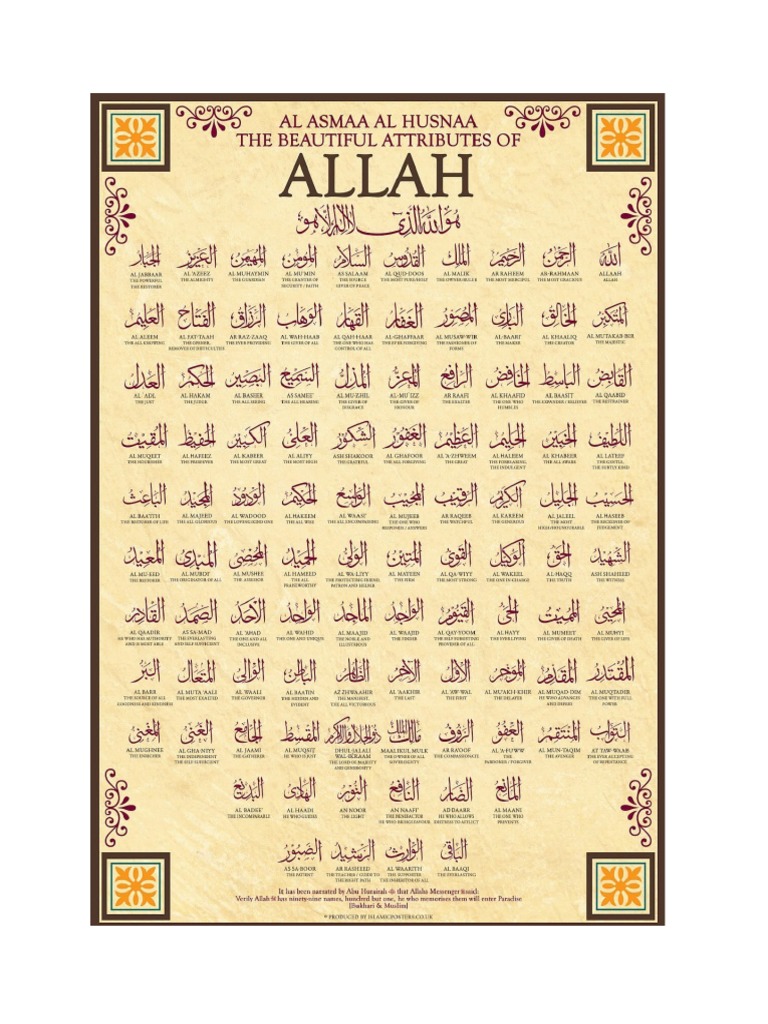 AL ASMAA AL HUSNAA
THE BEAUTIFUL ATTRIBUTES OF
ALLAH
هو الله الذي لا إله إلا هو
الله
ALLAAH
ALLAH
الرحمن
AR-RAHMAAN
THE MOST GRACIOUS
الرحيم
AR RAHEEM
THE MOST MERCIFUL
الملك
AL MALIK
القدوس
AL QUD-DOOS
السلام
AS SALAAM
THE SOURCE
GIVER OF PEACE
المؤمن
AL MU'MIN
THE GRANTER OF
SECURITY / FAITH
المهيمن
AL-MUHAYMIN
THE GUARDIAN
العزيز
AL 'AZEEZ
THE ALMIGHTY
الجبار
AL JABBAAR
THE POWERFUL,
THE RESTORER
المتكبر
AL MUTAKAB-BIR
THE MAJESTIC
الخالق
AL KHAALIQ
THE CREATOR
البارئ
AL-BAARI'
THE MAKER
المصور
AL MUSAW-WIR
THE FASHIONER OF
FORMS
الغفار
AL-GHAFFAAR
THE EVER FORGIVING
القهار
AL QAH-HAAR
THE ONE WHO HAS
CONTROL OF ALL
الوهاب
AL WAH-HAAB
THE GIVER OF ALL
الرزاق
AR RAZ-ZAAQ
THE EVER PROVIDING
الفتاح
AL FAT-TAAH
THE OPENER,
REMOVER OF DIFFICULTIES
العليم
AL ALEEM
THE ALL KNOWING
القابض
AL QAABID
THE RESTRAINER
الباسط
AL BAASIT
THE EXPANDER / RELIEVER
الخافض
AL KHAAFID
THE ONE WHO
HUMBLES
الرافع
AR RAAFI
THE EXALTER
المعز
AL-MU'IZZ
THE GIVER OF
HONOUR
المذل
AL MU'ZHIL
THE GIVER OF
DISGRACE
السميع
AS SAMEE'
THE ALL HEARING
البصير
AL BASEER
THE ALL SEEING
الحكم
AL HAKAM
THE JUDGE
العدل
AL 'ADL
THE JUST
اللطيف
AL LATEEF
THE GENTLE,
THE SUBTLY KIND
الخبير
AL KHABEER
THE ALL AWARE
الحليم
AL HALEEM
THE FORBEARING,
THE INDULGENT
العظيم
AL 'A-ZHWEEM
THE GREAT
الغفور
AL GHAFOOR
THE ALL FORGIVING
الشكور
ASH SHAKOOR
THE GRATEFUL
العلي
AL ALIYY
THE MOST HIGH
الكبير
AL KABEER
THE MOST GREAT
الحفيظ
AL HAFEEZ
THE PRESERVER
المقيت
AL MUQEET
THE NOURISHER
الحسيب
AL HASEEB
THE RECKONER OF
JUDGEMENT
الجليل
AL JALEEL
THE MOST
HIGH/HONOURABLE
الكريم
AL KAREEM
THE GENEROUS
الرقيب
AR RAQEEB
THE WATCHFUL
المجيب
AL MUJEEB
THE ONE WHO
RESPONDS / ANSWERS
الواسع
AL WAASI'
THE ALL ENCOMPASSING
الحكيم
AL HAKEEM
THE ALL WISE
الودود
AL WADOOD
THE LOVING KIND ONE
المجيد
AL MAJEED
THE ALL GLORIOUS
الباعث
AL BAATHS
THE RESTORER OF LIFE
الشهيد
ASH SHAHEED
THE WITNESS
الحق
AL-HAQQ
THE TRUTH
الوكيل
AL WAKEEL
THE ONE IN CHARGE
القوي
AL QA-WIYY
THE MOST STRONG
المتين
AL MATEEN
THE FIRM
الولي
AL WA-LIYY
THE PROTECTING FRIEND,
PATRON AND HELPER
الحميد
AL HAMEED
THE ALL
PRAISEWORTHY
المحصي
AL MUSHEE
THE ASSESSOR
المبدئ
AL MUBDI'
THE ORIGINATOR OF ALL
المعيد
AL MU-EED
THE RESTORER
المحيي
AL MUHYI
THE GIVER OF LIFE
المميت
AL MUMEET
THE GIVER OF DEATH
الحي
AL HAYY
THE EVER LIVING
القيوم
AL QAY-YOOM
THE SELF SUBSISTING
PROVIDER OF ALL
الواجد
AL WAAJID
THE FINDER
الماجد
AL MAAJID
THE NOBLE AND
ILLUSTRIOUS
الواحد
AL WAHID
THE UNIQUE
الأحد
AL 'AHAD
THE ONE AND ALL
INCLUSIVE
الصمد
AS SA-MAD
THE EVERLASTING
AND SELF SUFFICIENT
القادر
AL QAADIR
HE WHO HAS AUTHORITY
AND IS MOST ABLE
المقتدر
AL MUQTADIR
THE ONE WITH FULL
POWER
المقدم
AL MUQAD-DIM
HE WHO ADVANCES
AND BRINGS
المؤخر
AL MU'AKH-KHIR
THE DELAYER
الأول
AL 'AW-WAL
THE FIRST
الآخر
AL 'AAKHIR
THE LAST
الظاهر
AZ ZHWAAHIR
THE MANIFEST,
THE ALL VICTORIOUS
الباطن
AL BAATIN
THE HIDDEN AND
EVIDENT
الوالي
AL WAALI
THE GOVERNOR
المتعال
AL MUTA'AALI
THE MOST EXALTED
البر
AL BARR
THE SOURCE OF ALL
GOODNESS AND KINDNESS
التواب
AT TAW-WAAB
THE EVER ACCEPTING
OF REPENTANCE
المنتقم
AL MUN-TAQIM
THE AVENGER
العفو
AL 'A-FUWW
THE
PARDONER / FORGIVER
الرؤوف
AR RA'OOF
THE COMPASSIONATE
مالك الملك
MAALIKUL MULK
THE OWNER OF ALL
SOVEREIGNTY
ذو الجلال والإكرام
DHUL-JALALI
WAL-IKRAAM
THE LORD OF MAJESTY
AND GENEROSITY
المقسط
AL MUQSIT
HE WHO IS JUST
الجامع
AL JAAMI
THE GATHERER
الغني
AL GHA-NIYY
THE INDEPENDENT
THE SELF SUFFICIENT
المغني
AL MUGHNEE
THE ENRICHER
المانع
AL MAANI
THE ONE WHO
PREVENTS
الضار
AD DAARR
HE WHO ALLOWS
DISTRESS TO AFFLICT
النافع
AN NAAFI'
THE BENEFACTOR
النور
AN NOOR
THE LIGHT
الهادي
AL HAADI
HE WHO GUIDES
البديع
AL BADEE'
THE INCOMPARABLE
الباقي
AL BAAQI
THE EVERLASTING
الوارث
AL WAARITH
THE SUPPORTER
THE INHERITOR OF ALL
الرشيد
AR RASHEED
THE TEACHER / GUIDE TO
THE RIGHT PATH
الصبور
AS SA-BOOR
THE PATIENT
It has been narrated by Abu Hurairah that Allahs Messenger said:
Verily Allah has ninety-nine names, hundred but one, he who memorises them will enter Paradise
[Bukhari & Muslim]
© PRODUCED BY ISLAMICPOSTERS.CO.UK